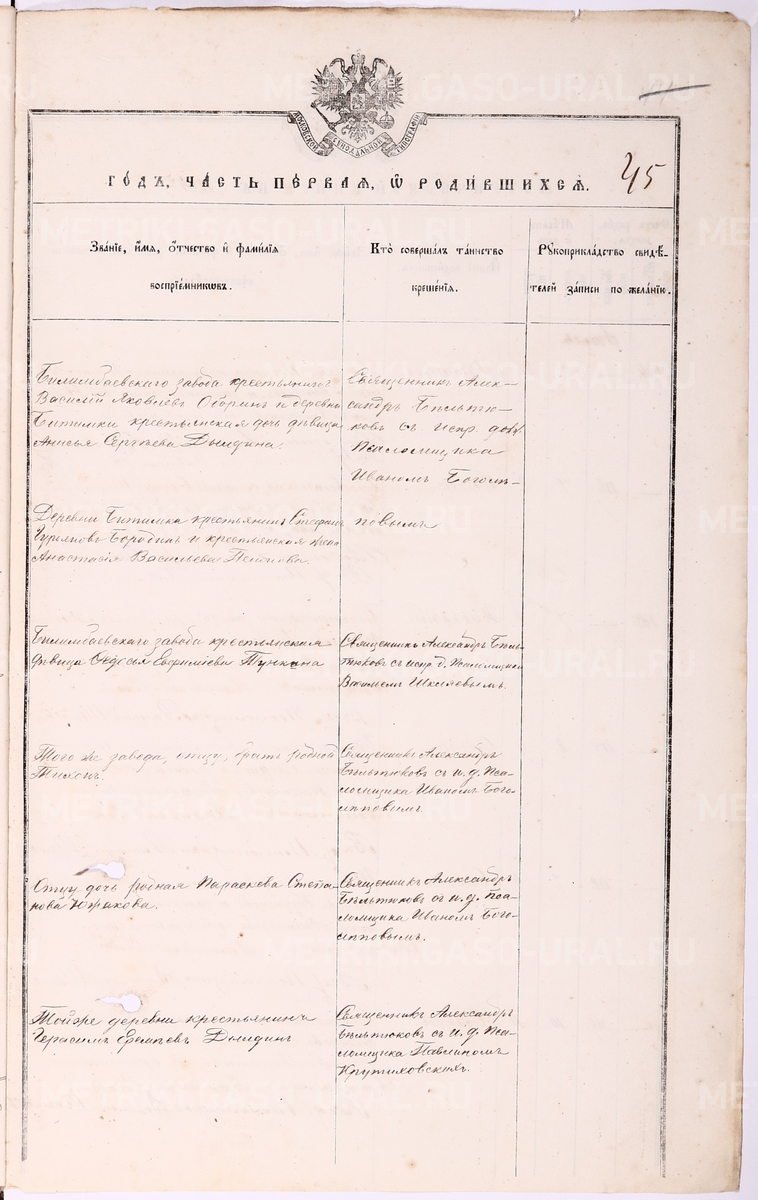 МОСКОВСКОЙ СУНОДАЛЬНОЙ ТИПОГРАФІИ
45
ГОДЪ, ЧАСТЬ ПЕРВАЯ, Ѡ РОДИВШИХСЯ.
Званіе, имя, отчество и фамилія
воспріемниковъ.
Кто совершалъ таинство
крещенія.
Рукоприкладство свидѣ-
телей записи по желанію.
Билимбаевскаго завода крестьянинъ
Василій Яковлевъ Оборинъ и деревни
Битимки крестьянская дочь дѣвица
Анисья Сергѣева Дылдина.
Священникъ Алек-
сандръ Бѣльтю-
ковъ съ испр. долж.
Псаломщика
Иваномъ Боголя-
Деревни Битимка крестьянинъ Стефанъ
Бородинъ и крестьянская жена
Анастасія Васильева
повымъ
Билимбаевскаго завода крестьянская
дѣвица Ѳедосья Евфиміева Тункина
Священникъ Александръ Бѣль-
тюковъ съ испр. д. Псаломщика
Василіем Шкляевымъ.
Того же завода, отцу, братъ родной
Тихонъ.
Священникъ Александръ
Бѣльтюковъ съ и. д. Пса-
ломщика Иваномъ Бого-
лѣповымъ.
Отцу дочь родная Параскева Степа-
нова Южакова.
Священникъ Александръ
Бѣльтюковъ съ и. д. Пса-
ломщика Иваномъ Бого-
лѣповымъ.
Той же деревни крестьянинъ
Герасимъ Дылдинъ
Священникъ Александръ
Бѣльтюковъ съ и. д. Пса-
ломщика Павлиномъ
Крутиховскихъ.
METRIKI.GASO-URAL.RU